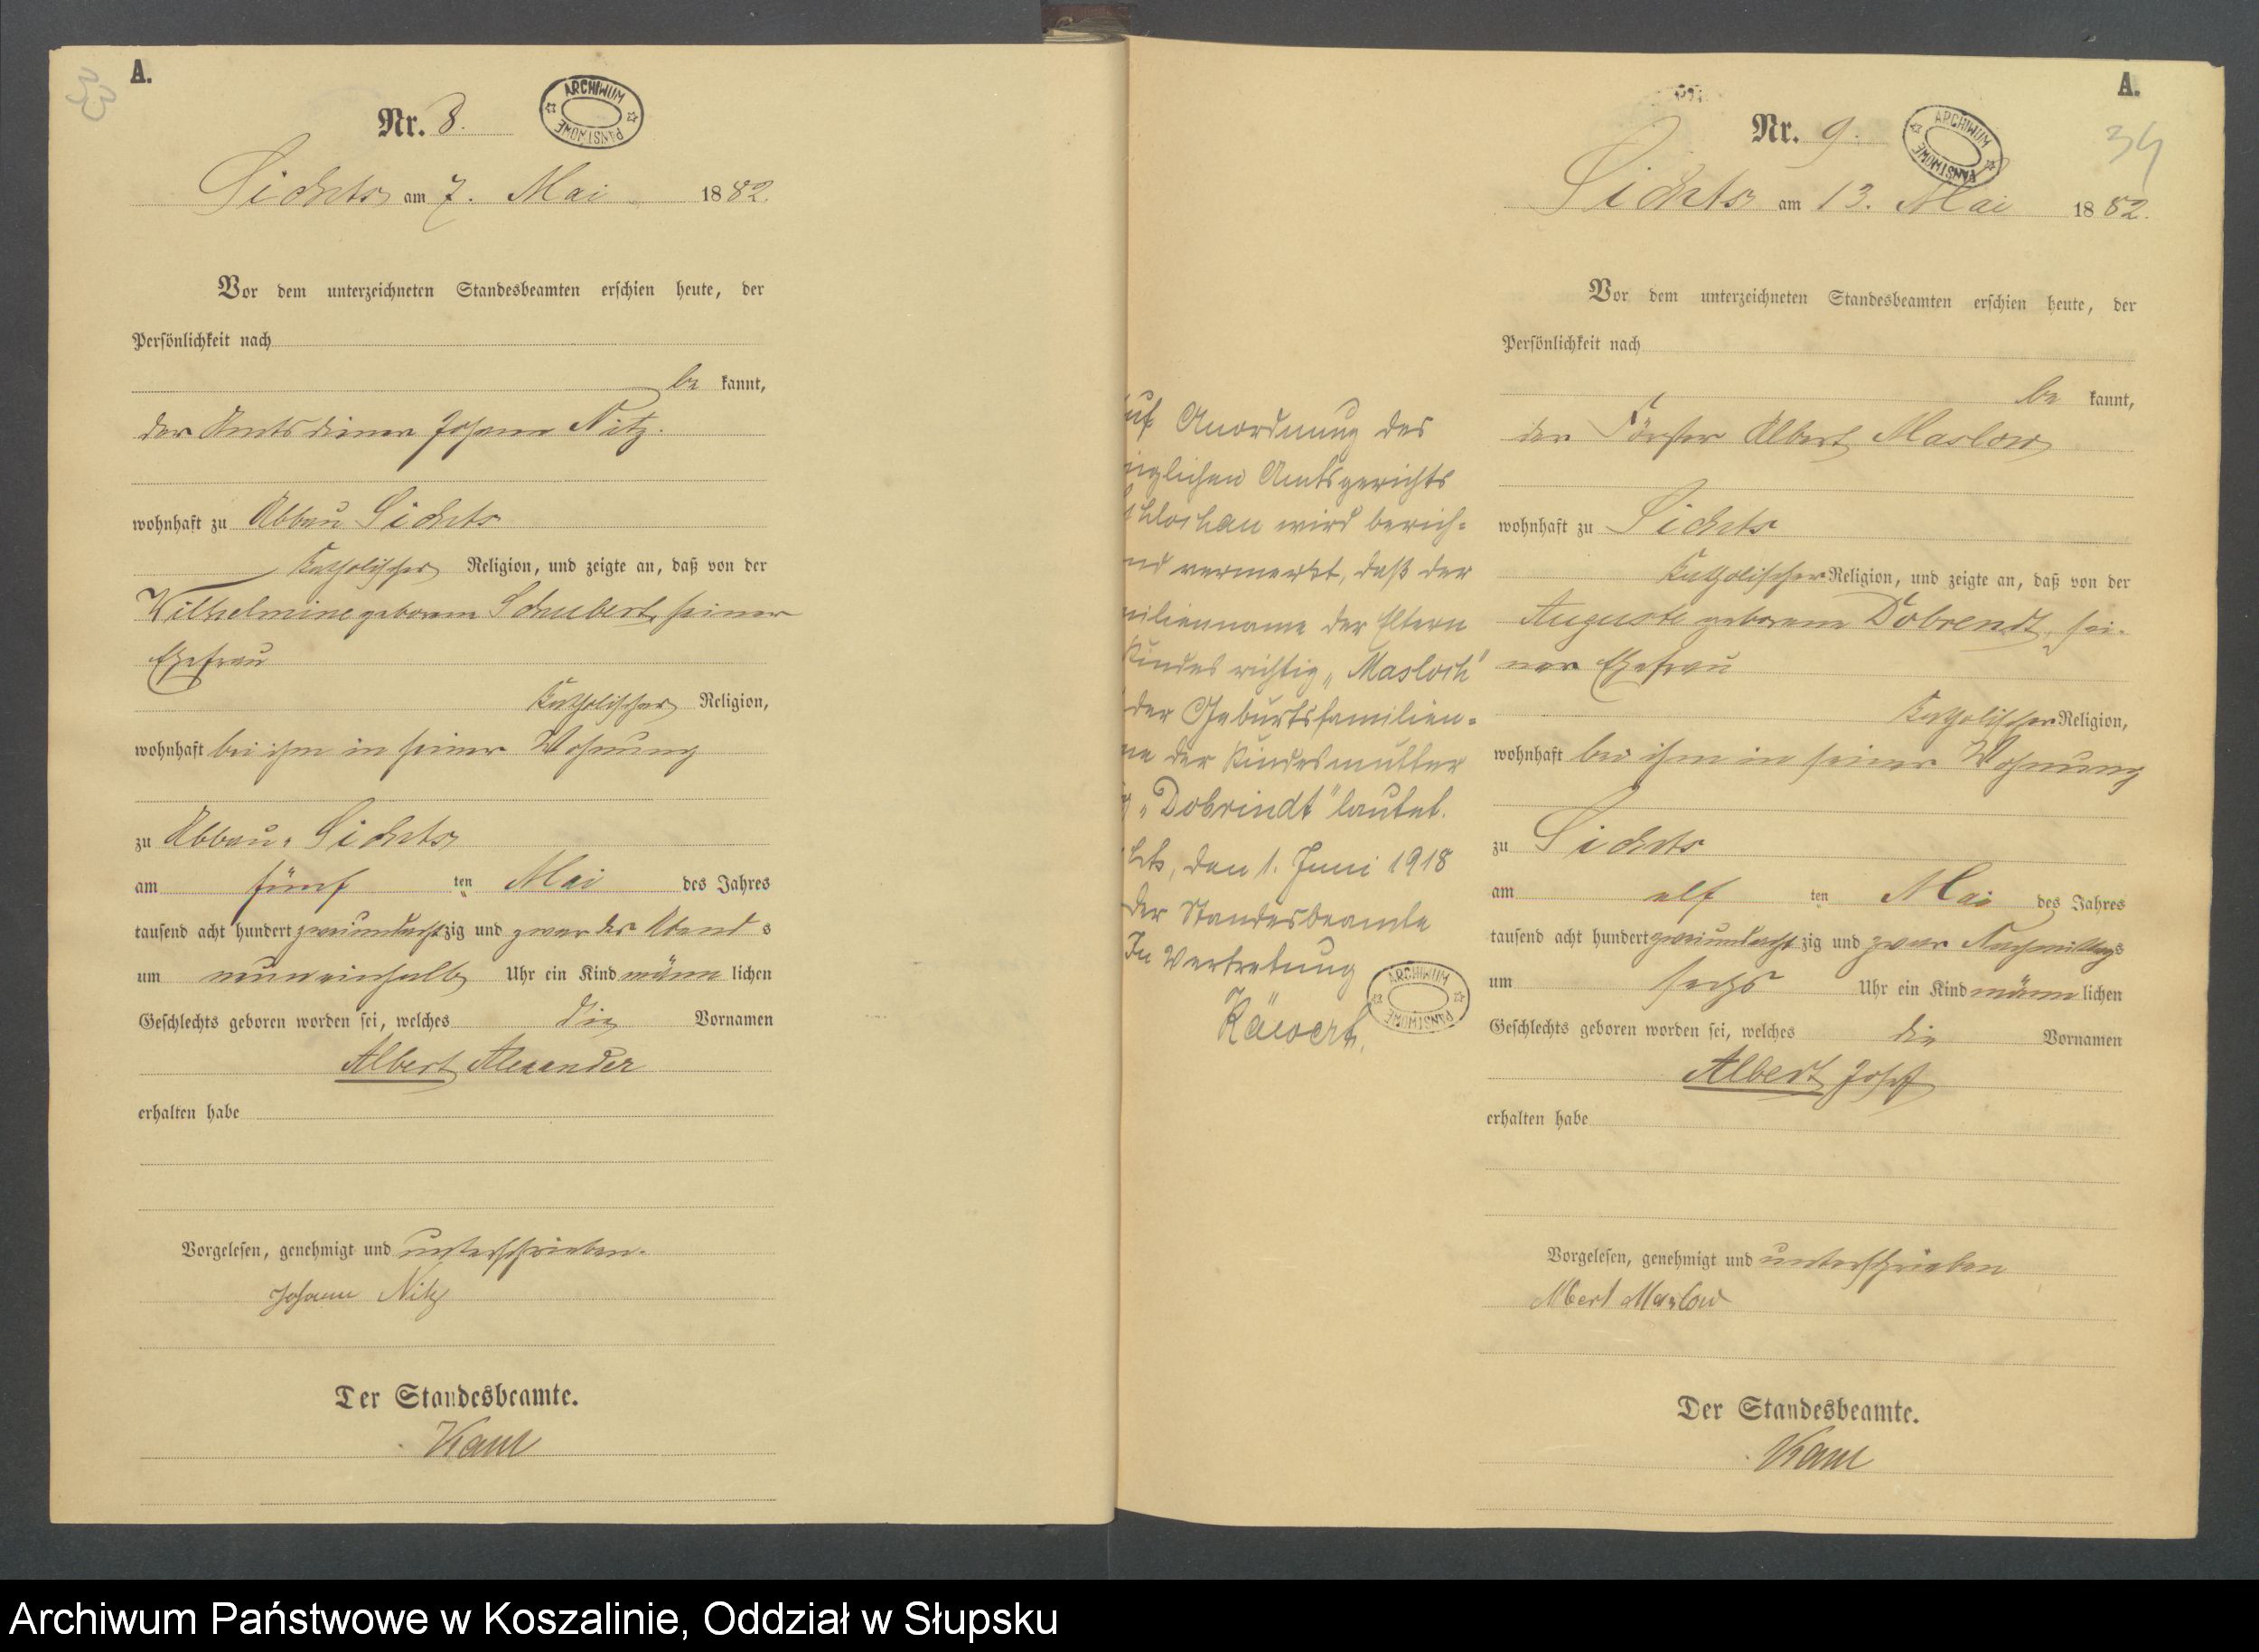 33
A.
Nr. 8.
ARCHIWUM PAŃSTWOWE
Sichts am 7. Mai 1882.
Vor dem unterzeichneten Standesbeamten erschien heute, der
Persönlichkeit nach
be kannt,
der Amtsdiener Johann Nitz.
wohnhaft zu Abbau Sichts
katholischer Religion, und zeigte an, daß von der
Wilhelmine geborenen Schubert, seiner
Ehefrau
katholischer Religion,
wohnhaft bei ihm in seiner Wohnung
zu Abbau-Sichts
am fünf ten Mai des Jahres
tausend acht hundert zweiundachtzig und zwar des Abend s
um neuneinhalb Uhr ein Kind männ lichen
Geschlechts geboren worden sei, welches die Vornamen
Albert Alexander
erhalten habe
Vorgelesen, genehmigt und unterschrieben.
Johann Nitz
Der Standesbeamte.
A.
34
Nr. 9.
ARCHIWUM PAŃSTWOWE
Sichts am 13. Mai 1882.
Vor dem unterzeichneten Standesbeamten erschien heute, der
Persönlichkeit nach
be kannt,
der Förster Albert Maslow
wohnhaft zu Sichts
katholischer Religion, und zeigte an, daß von der
Auguste geborenen Dobrendt, sei-
ner Ehefrau
katholischer Religion,
wohnhaft bei ihm in seiner Wohnung
zu Sichts
am elf ten Mai des Jahres
tausend acht hundert zweiundacht zig und zwar Nachmittags
um sechs Uhr ein Kind männ lichen
Geschlechts geboren worden sei, welches die Vornamen
Albert Josef
erhalten habe
Vorgelesen, genehmigt und unterschrieben
Albert Maslow
Der Standesbeamte.
uf Anordnung des
iglichen Amtsgerichts
chlochau wird berich-
nd vermerkt, daß der
milienname der Eltern
Kindes richtig „Masloch"
der Geburtsfamilien-
me der Kindesmutter
g „Dobrindt" lautet.
hts, den 1. Juni 1918
Der Standesbeamte
In Vertretung
ARCHIWUM PAŃSTWOWE
Archiwum Państwowe w Koszalinie, Oddział w Słupsku